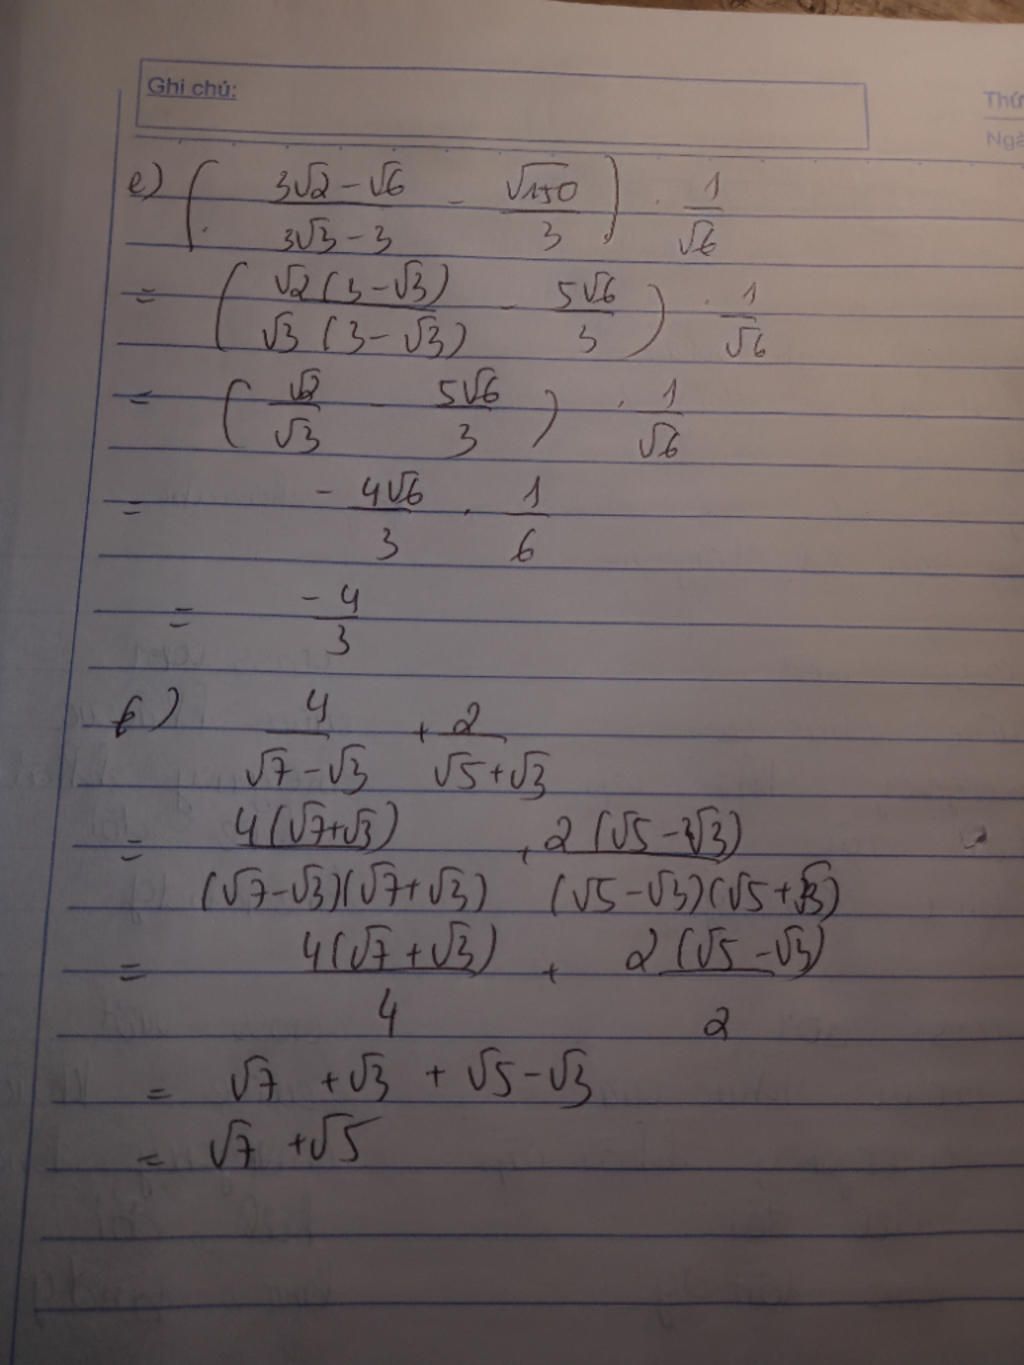 Ghi chú:
Thứ
Ngà
e) ( (3√2 - √6)/(3√3 - 3) - √150/3 ) . 1/√6
= ( √2(3-√3)/√3(3-√3) - 5√6/3 ) . 1/√6
= ( √2/√3 - 5√6/3 ) . 1/√6
= - 4√6/3 . 1/6
= -4/3
f) 4/(√7 - √3) + 2/(√5 + √3)
= 4(√7+√3)/(√7-√3)(√7+√3) + 2(√5-√3)/(√5-√3)(√5+√3)
= 4(√7+√3)/4 + 2(√5-√3)/2
= √7 + √3 + √5 - √3
= √7 + √5